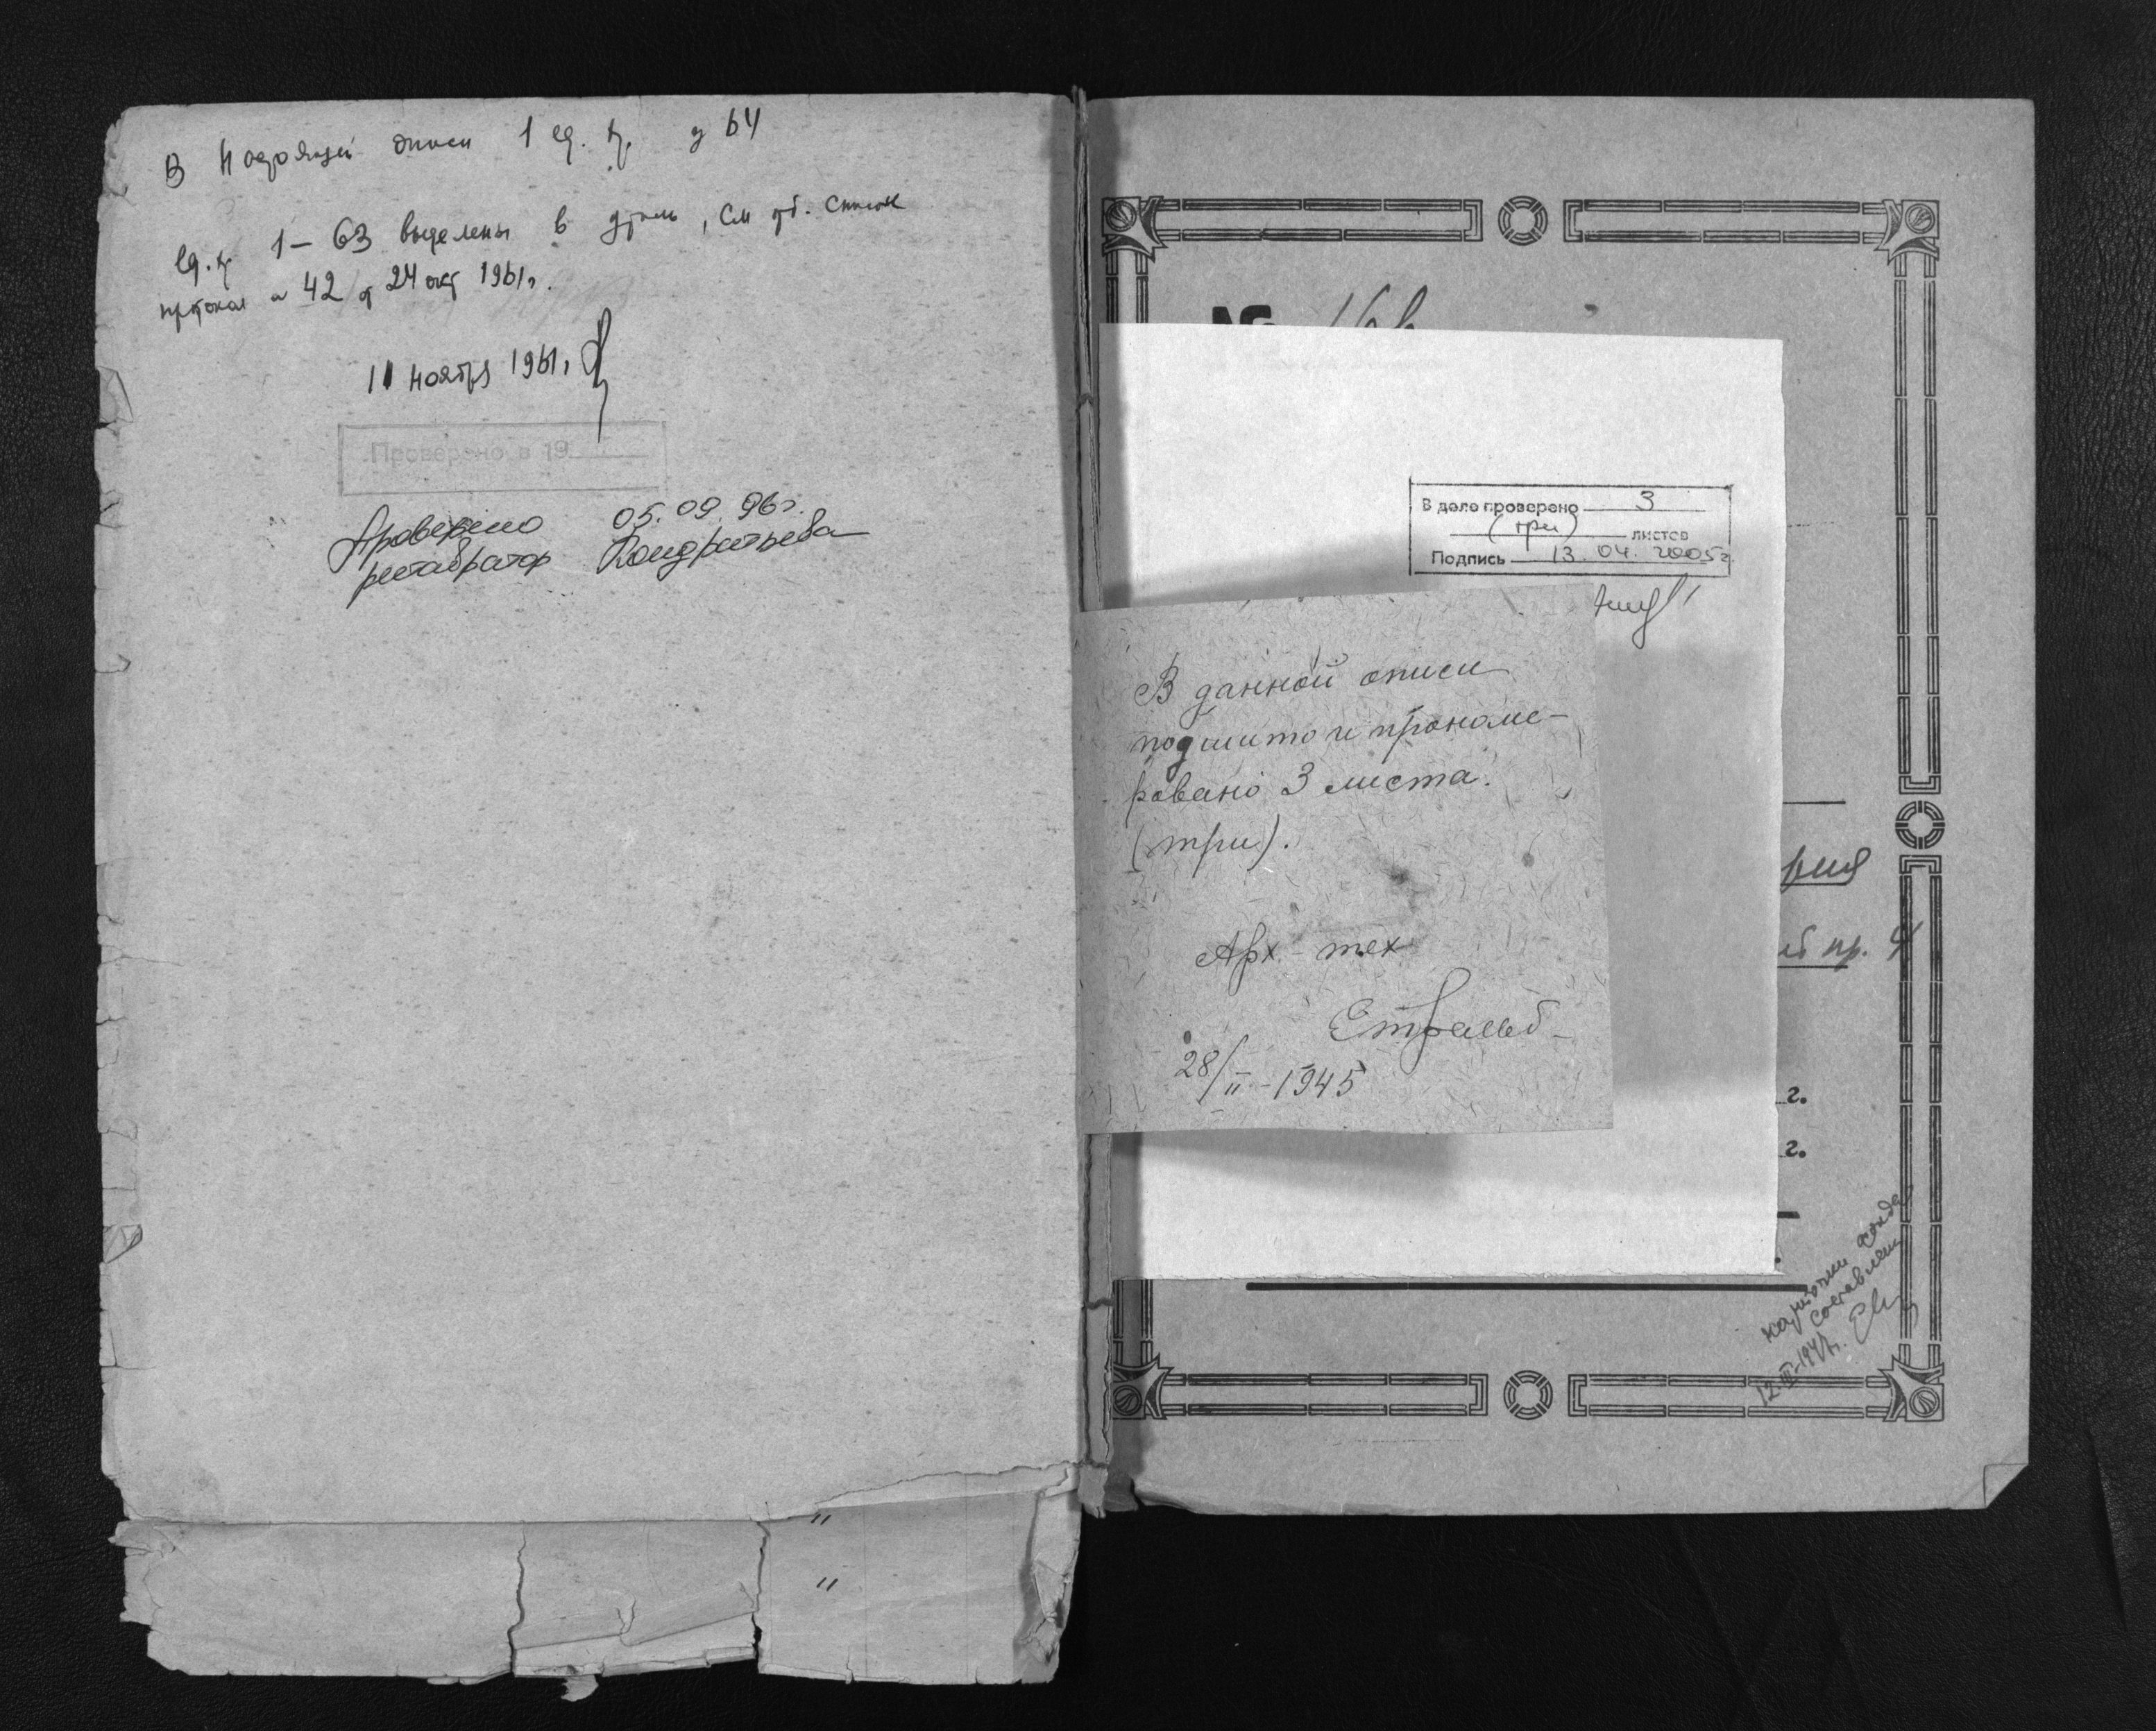 В настоящей описи 1 ед. х. № 64
Ед. х. 1 – 63 выделены в утиль, см отб. список
протокол № 42 от 24 окт 1961г.
11 ноября 1961г.
Проверено в 19
Проверено 05.09.96г.
реставратор Кондратьева
№ 166
В деле проверено 3
(три) листов
Подпись 13.04.2005г.
В данной описи
подшито и прономе-
ровано 3 листа.
(три).
Арх. - тех
28/II - 1945
рия
пр.
г.
г.
карточки фонда
составлены